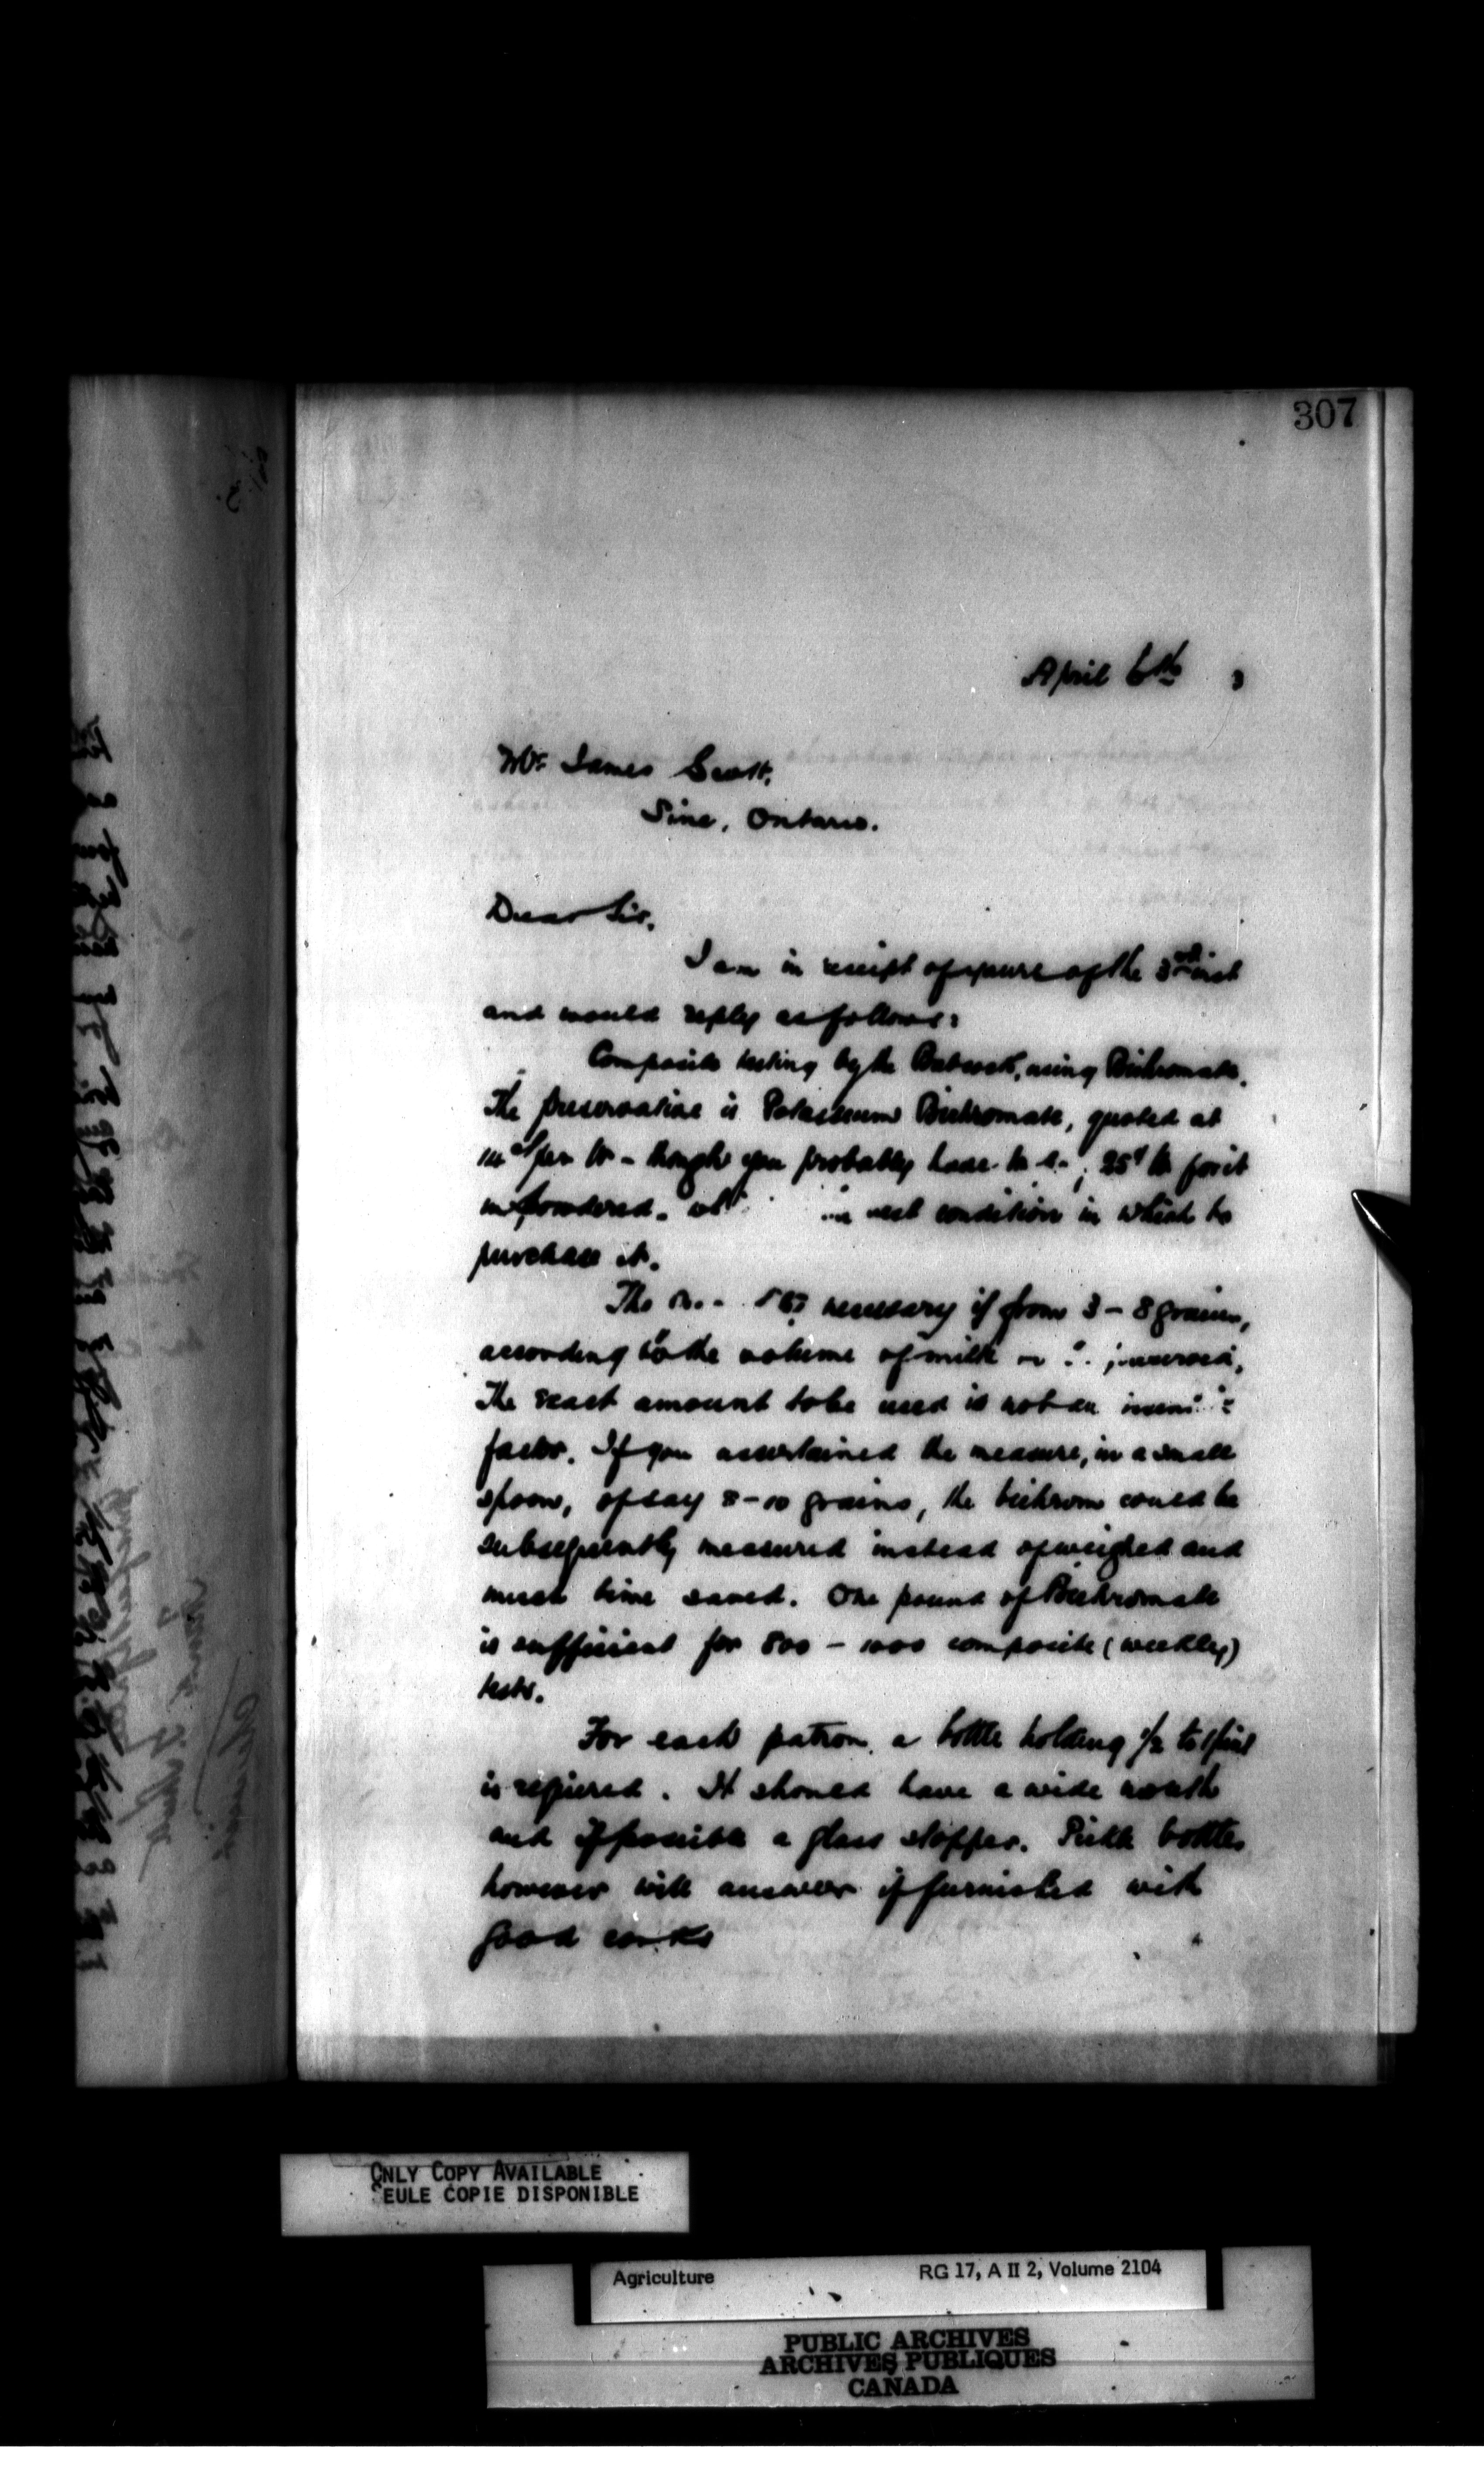 307
April 6th 3
Mr. James Scott,
Pine, Ontario.
Dear Sir,
I am in receipt of yours of the 3rd inst
and would reply as follows:
Composite testing by the Babcock, using Bichromate.
The preservative is Potassium Bichromate, quoted at
14¢ per lb - though you probably have to 25¢ lb for it
powdered. condition in which to
purchase it.
The necessary is from 3 - 8 grains,
according to the volume of milk
The exact amount to be used is not an
factor. If you ascertained the measure, in a small
spoon, of say 8-10 grains, the bichrom could be
subsequently measured instead of weighed and
much time saved. One pound of Bichromate
is sufficient for 800 - 1000 composite (weekly)
tests.
For each patron, a bottle holding 1/2 to 1 pint
is required. It should have a wide mouth
and if possible a glass stopper. Pickle bottles
however will answer if furnished with
good corks
ONLY COPY AVAILABLE
SEULE COPIE DISPONIBLE
Agriculture RG 17, A II 2, Volume 2104
PUBLIC ARCHIVES
ARCHIVES PUBLIQUES
CANADA